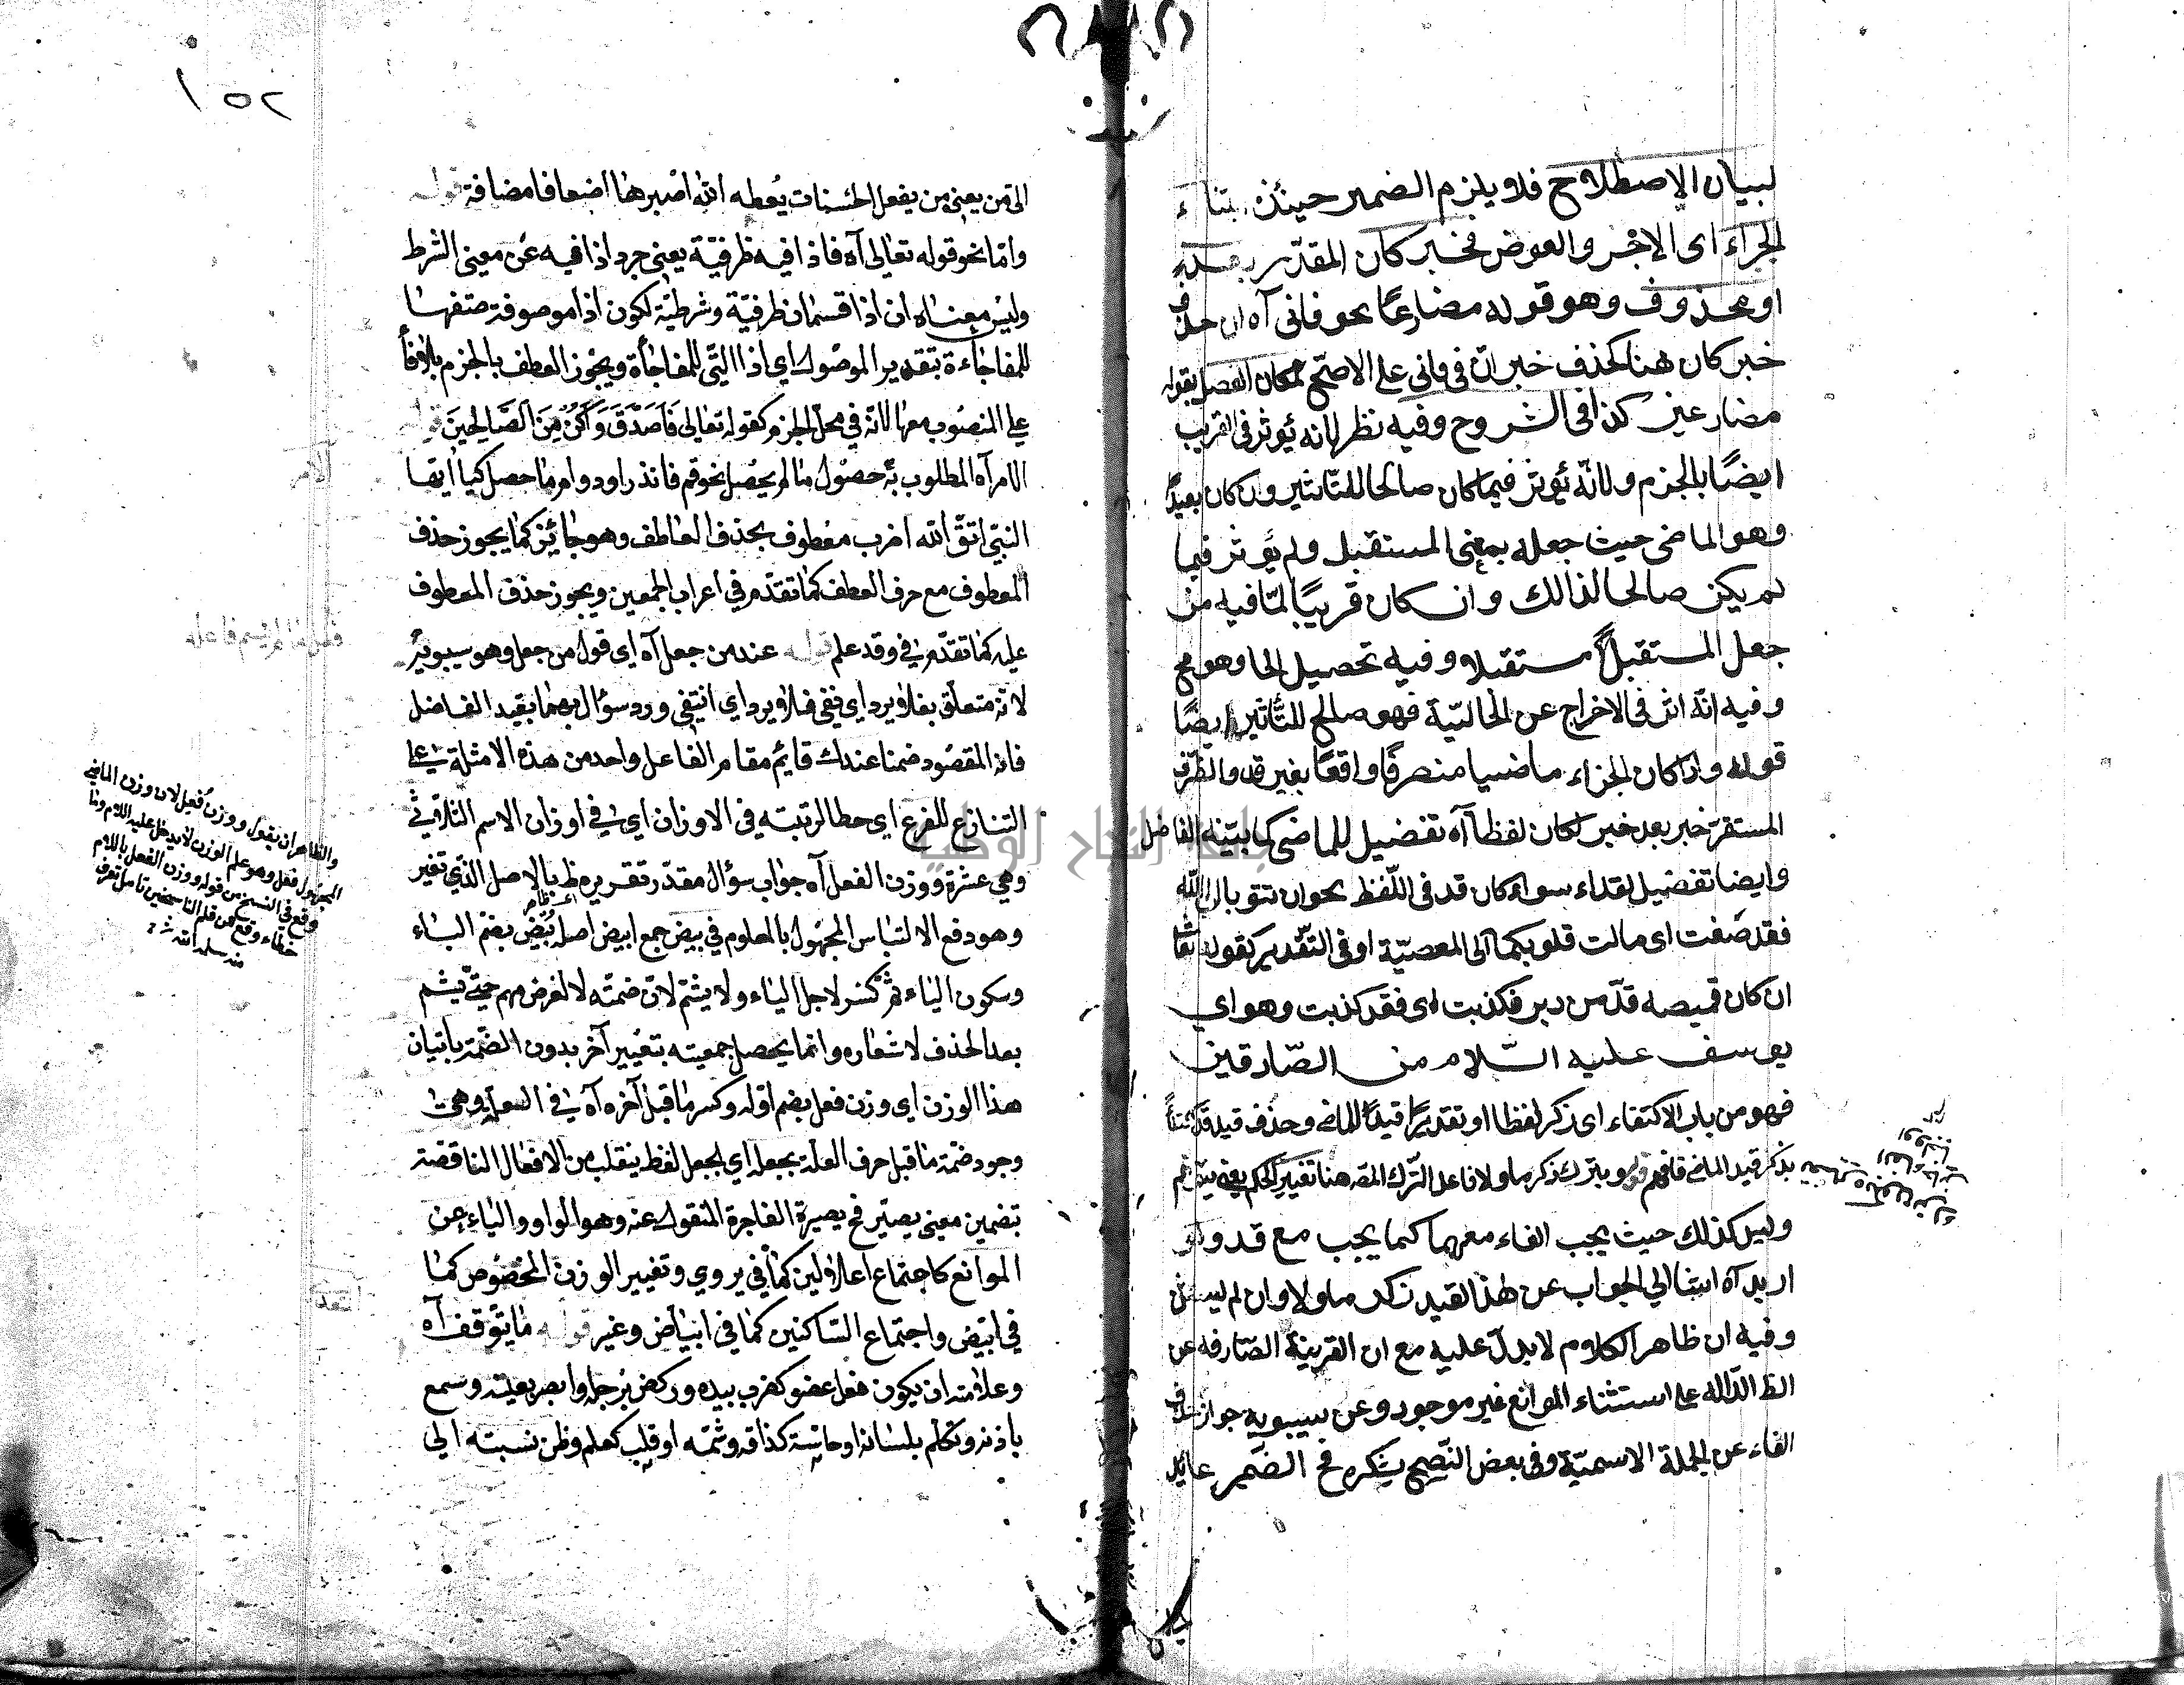 لبيان الاصطلاح فلا يلزم الضمير حينئذ بتناء
الجزاء اى الاجر والعوض فخبر كان المقدر بعده
او محذوف وهو قوله مضارعا نحو فانى آه ان حذف
خبر كان هنا كحذف خبر ان فى فانى على الاصح لمكان الفصل بقوله
مضارعين كذا فى الشروح وفيه نظر لانه يؤثر فى القريب
ايضًا بالجزم ولانّه يؤثر فيما كان صالحا للتأثير وان كان بعيدًا
وهو الماضى حيث جعله بمعنى المستقبل ولم يؤثر فيما
لم يكن صالحا لذالك وان كان قريبًا لما فيه من
جعل المستقبل مستقبلا وفيه تحصيل الحا وهو مح
وفيه انّه اثر فى الاخراج عن الحاليّة فهو صالح للتأثير ايضًا
قوله واذا كان الجزاء ماضيا منصرفًا واقعًا بغير قد والظرف
المستقر خبر بعد خبر لكان لفظا آه تفضيل للماضى كما بيّنه الفاضل
وايضا تفضيل لقد اء سواء كان قد فى اللّفظ نحو ان تتوبا الى الله
فقد صغت اى مالت قلوبكما الى المعصيّة او فى التّقدير كقوله تعا
ان كان قميصه قدّ من دبر فكذبت اى فقد كذبت وهو اي
يوسف عليه السّلام من الصّادقين
فهو من باب الاكتفاء اى ذكر لفظا او تقديرًا قيدًا للماضى وحذف قيد قد اكتفاءً
بذكر قيد الماضى فافهم قوله وبترك ذكر ما ولا فاعل التّرك المقه هنا تغيير الحكم يعنى يتوهم
وليس كذلك حيث يجب الفاء معهما كما يجب مع قد ولو
اريد آه اشا الى الجواب عن هذا القيد ذكر ما ولا وان لم يستثن
وفيه ان ظاهر الكلام لا يدلّ عليه مع ان القرينة الصّارفه عن
الظ الدّاله على استثناء الموانع غير موجود وعن سيبويه جواز حذف
الفاء عن الجملة الاسميّة وفى بعض النّسخ يذكره فح الضمير عائد
١٥٢
الى من يعنى من يفعل الحسنات يُعطه الله اصبرها اضعافا مضافة قوله
وامّا نحو قوله تعالى آه فاذا فيه ظرفيّة يعنى جرد اذا فيه عن معنى الشرط
وليس معناه ان اذا قسمان ظرفيّة وشرطيّة لكون اذا موصوفة صتفها
للمفاجاءة بتقدير الموصول اى اذا التّى للمفاجأة ويجوز العطف بالجزم بلا فاء
على المنصوب معها لانّه في محلّ الجزم كقوله تعالى فَاَصَدَّقَ وَاَكُنْ مِنَ الصَّالِحِينَ قوله
الامر آه المطلوب به حصول ما لم يحصل نحو قم فانذر او دوام ما حصل كيا ايّها
النبىّ اتق الله اضرب معطوف بحذف العاطف وهو جائز كما يجوز حذف
المعطوف مع حرف العطف كما تقدّم في اعراب الجمعين ويجوز حذف المعطوف
عليه كما تقدّم في وقد علم قوله عند من جعل آه اى قول من جعل وهو سيبويه
لانه متعلّق بفلا يرد اي ففى فلا يرد اي انتفى ورد سؤال بعضها بقيد الفاضل
فانّ المقصود ضمنا عندك قايم مقام الفاعل واحد من هذه الامثلة على
التنازع للفرع اى حطا لرتبته فى الاوزان اى في اوزان الاسم الثلاثي
وهي عشرة ووزن الفعل آه جواب سؤال مقدّر تقريره ظ بالاصل الذى تغير
وهو دفع الالتباس المجهول بالمعلوم في بيض جمع ابيض اصله بُيْض بضم الباء
وسكون الياء ثم كسر لاجل الياء ولا يشمّ لانّ ضمّته لا لغرض مهم حتّى يشم
بعد الحذف لاشعاره وانما يحصل جمعيته بتغيير آخر بدون الضمّة باتيان
هذا الوزن اى وزن فعل بضم اوّله وكسر ما قبل آخره آه في العلّة وهى
وجود ضمّة ما قبل حرف العلّة بجعله اي لجعل لفظ ينقلب من الافعال الناقصة
بتضمين معنى يصيّر فح يصيرة الفاجرة المنقول عنه وهو الواو والياء عن
الموانع كاجتماع اعلالين كما في يروي وتغيير الوزن المخصوص كما
في ابيض واجتماع السّاكنين كما في ابياض وغير قوله ما يتوقف آه
وعلامته ان يكون فعل عضو كضرب بيده وركض برجله وابصر بعينه وسمع
باذنه وتكلم بلسانه او حاسّة كذاقه وشمّه او قلب كعلم وظن نسبته الى
والظاهر ان يقول ووزن فُعِل لان وزن الماضى
المجهول فعل وهو علم الوزن لا يدخل عليه اللام وما
وقع في النسخ من قوله ووزن الفعل باللام
خطاء وقع من قلم الناسخين تامل تعرف
منه سلمه الله
جامعة النجاح الوطنية